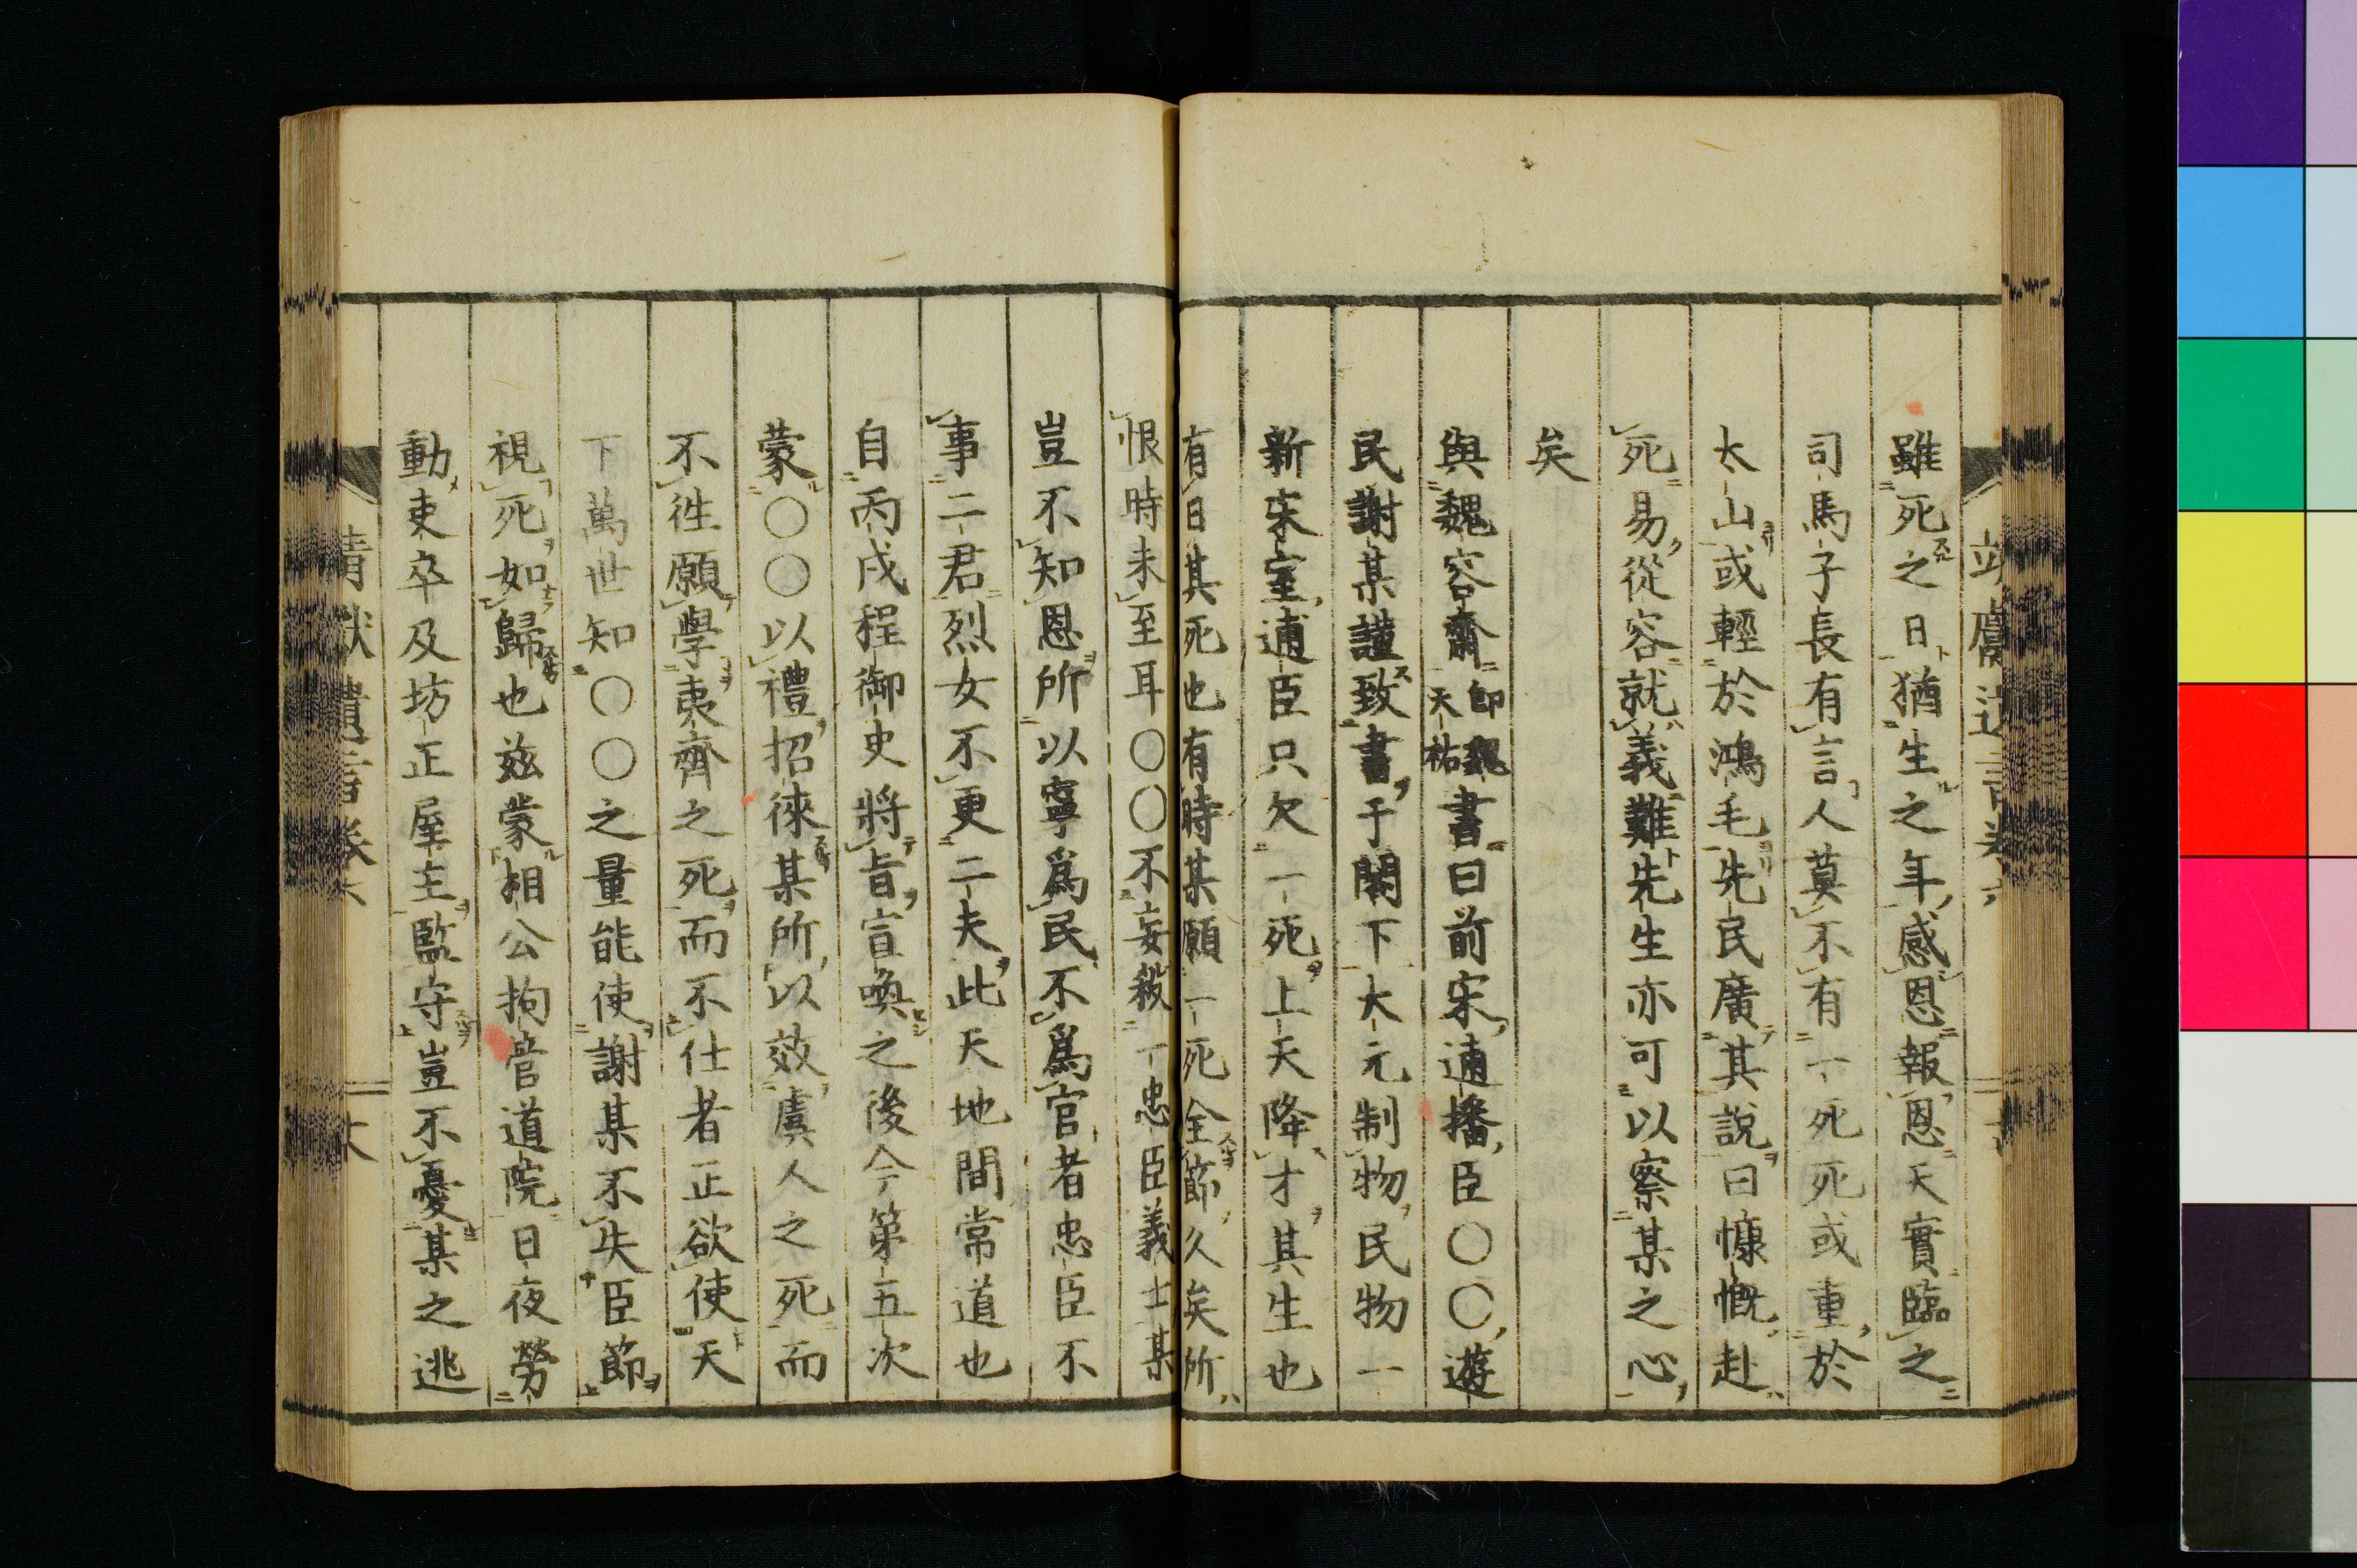 雖死之日猶生之年感恩報恩天實臨之
司馬子長有言人莫不有一死死或重於
太山或輕於鴻毛先民廣其說曰慷慨赴
死易從容就義難先生亦可以察某之心
矣
與魏容齋即魏天祐書曰前宋逋播臣〇〇遊
民謝某謹致書于閣下大元制物民物一
新宋室逋臣只欠一死上天降才其生也
有日其死也有時某願一死全節久矣所
恨時未至耳〇〇不妄殺一忠臣義士某
豈不知恩所以寧爲民不爲官者忠臣不
事二君烈女不更二夫此天地間常道也
自丙戌程御史將旨宣喚之後今第五次
蒙〇〇以禮招徠某所以效虞人之死而
不往願學夷齊之死而不仕者正欲使天
下萬世知〇〇之量能使謝某不失臣節
視死如歸也玆蒙相公拘管道院日夜勞
動吏卒及坊正屋主監守豈不憂某之逃